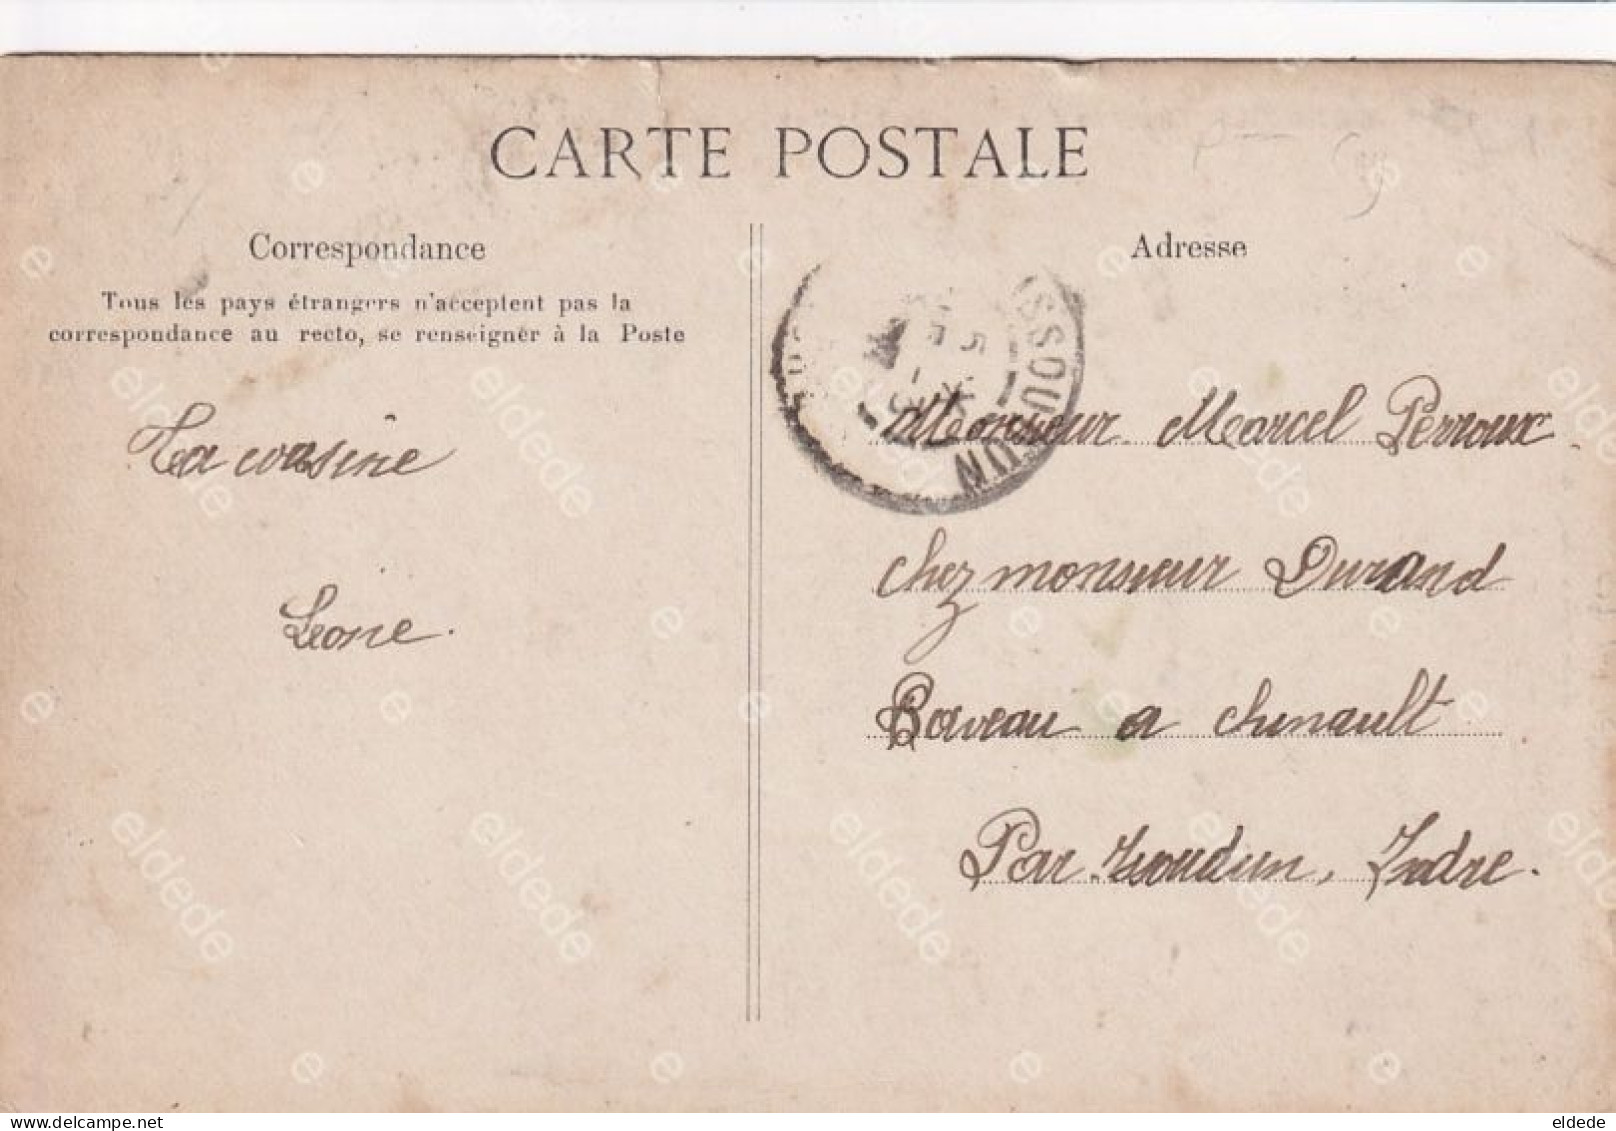 CARTE POSTALE
Correspondance
Tous les pays étrangers n'acceptent pas la
correspondance au recto, se renseigner à la Poste
Ta cousine
Léonie.
Adresse
ISSOUDUN
Monsieur Marcel Perroux
chez monsieur Durand
Boiveau a chinault
Par Issoudun, Indre.
eldede
https://www.delcampe.net
eldede